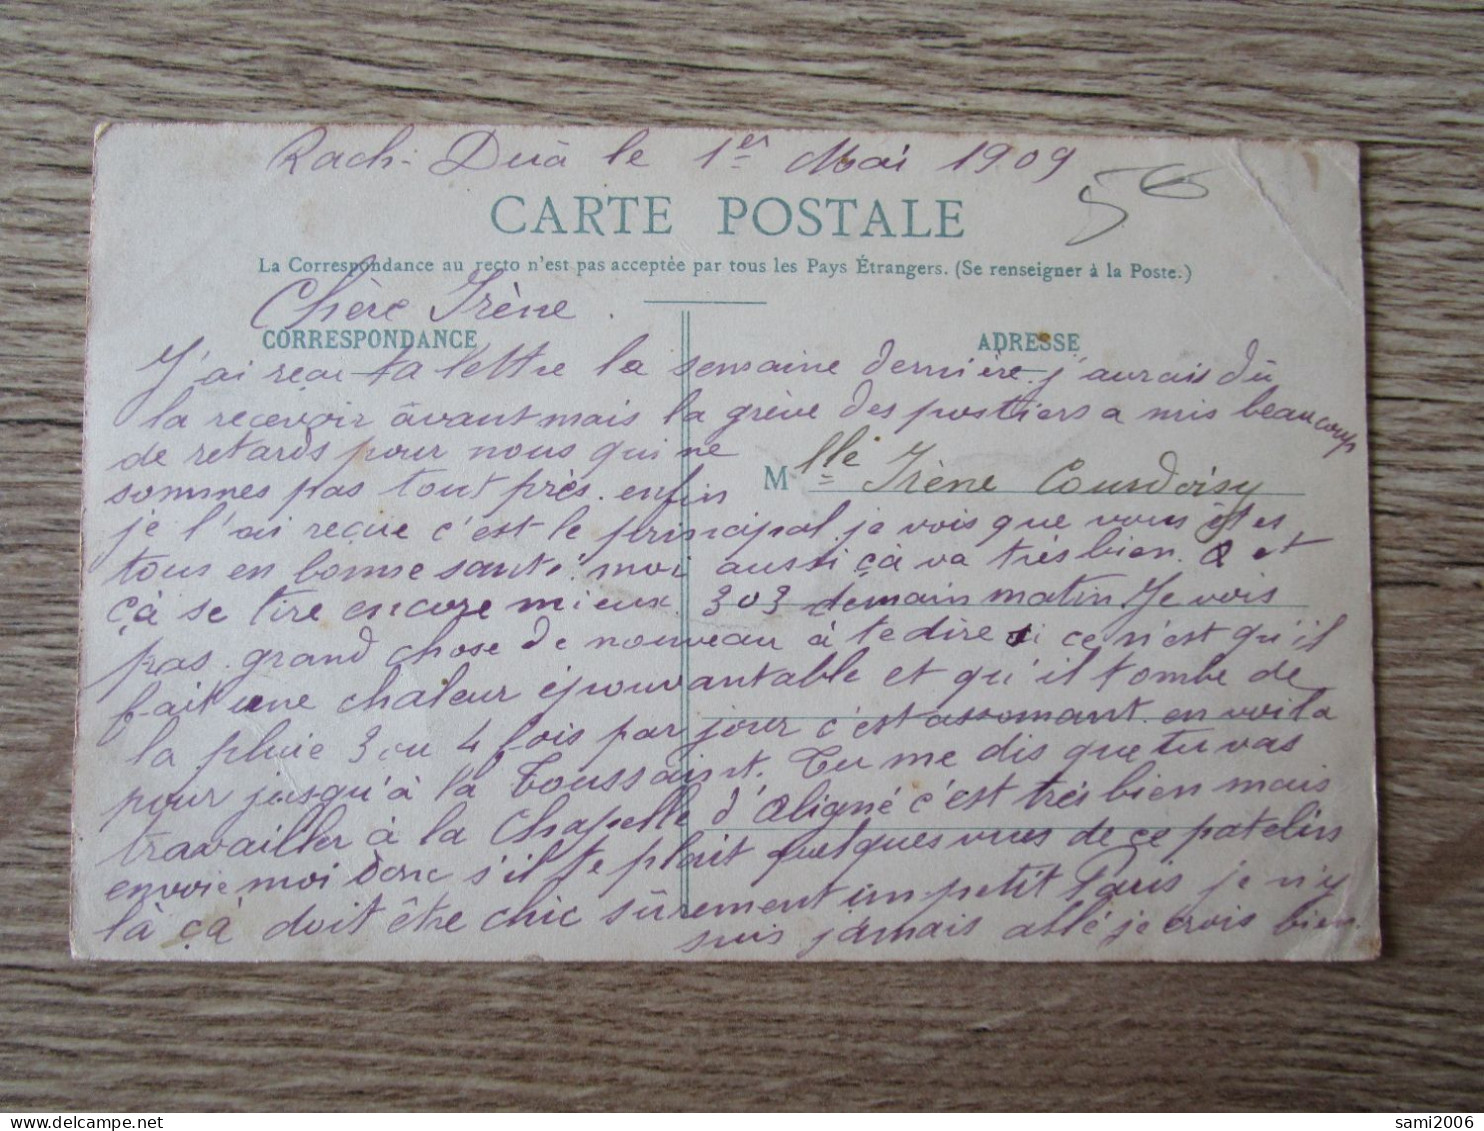 Rach-Dua le 1er Mai 1909
CARTE POSTALE
La Correspondance au recto n'est pas acceptée par tous les Pays Étrangers. (Se renseigner à la Poste.)
Chère Irène.
CORRESPONDANCE
ADRESSE
J'ai reçu ta lettre la semaine dernière. j'aurais dû
la recevoir avant mais la grève des postiers a mis beaucoup
de retards pour nous qui ne
sommes pas tout près. enfin
Mlle Irène Courdoisy
je l'ai reçue c'est le principal. je vois que vous êtes
tous en bonne santé. moi aussi çà va très bien. et
çà se tire encore mieux. 303 demain matin Je vois
pas grand chose de nouveau à te dire si ce n'est qu'il
fait une chaleur épouvantable et qu'il tombe de
la pluie 3 ou 4 fois par jour c'est assomant. en voila
pour jusqu'à la Toussaint. Tu me dis que tu vas
travailler à la Chapelle d'Aligné c'est très bien mais
envoie moi donc s'il te plait quelques vues de ce patelin
là çà doit être chic sûrement un petit Paris je n'y
suis jamais allé je crois bien.
5€
sami2006